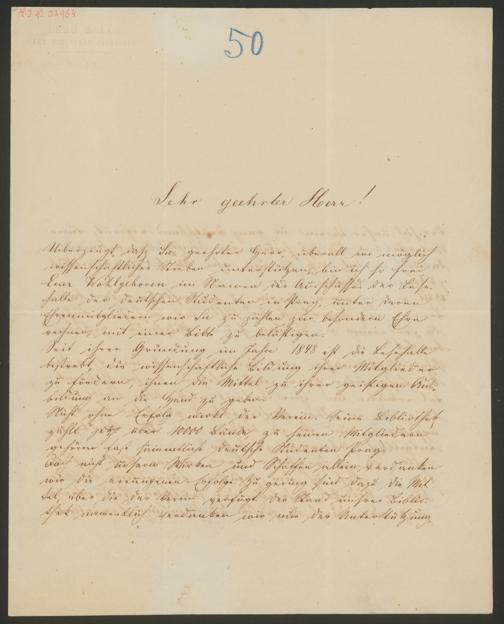 50
Sehr geehrter Herr!
Ueberzeugt, daß Sie, geehrter Herr, überall wo möglich
wissenschaftliches Streben unterstützen, bin ich so frei
Euer Wohlgeboren im Namen des Ausschusses der Lese-
halle der deutschen Studenten in Prag, unter deren
Ehrenmitgliedern wir Sie zu zählen zur besonderen Ehre
rechnen, mit einer Bitte zu belästigen.
Seit ihrer Gründung im Jahre 1848 ist die Lesehalle
bestrebt, die wissenschaftliche Bildung ihrer Mitglieder
zu fördern, ihnen die Mittel zu ihrer geistigen Aus-
bildung an die Hand zu geben.
Nicht ohne Erfolg wirkt der Verein. Seine Bibliothek
zählt jetzt über 10000 Bände, zu seinen Mitgliedern
gehören fast sämmtliche deutsche Studenten Prags.
Doch nicht unserm Wirken und Schaffen allein verdanken
wir die errungenen Erfolge. Zu gering sind dazu die Mit-
tel, über die der Verein verfügt. Den Stand unserer Biblio-
thek namentlich verdanken wir nur der Unterstützung